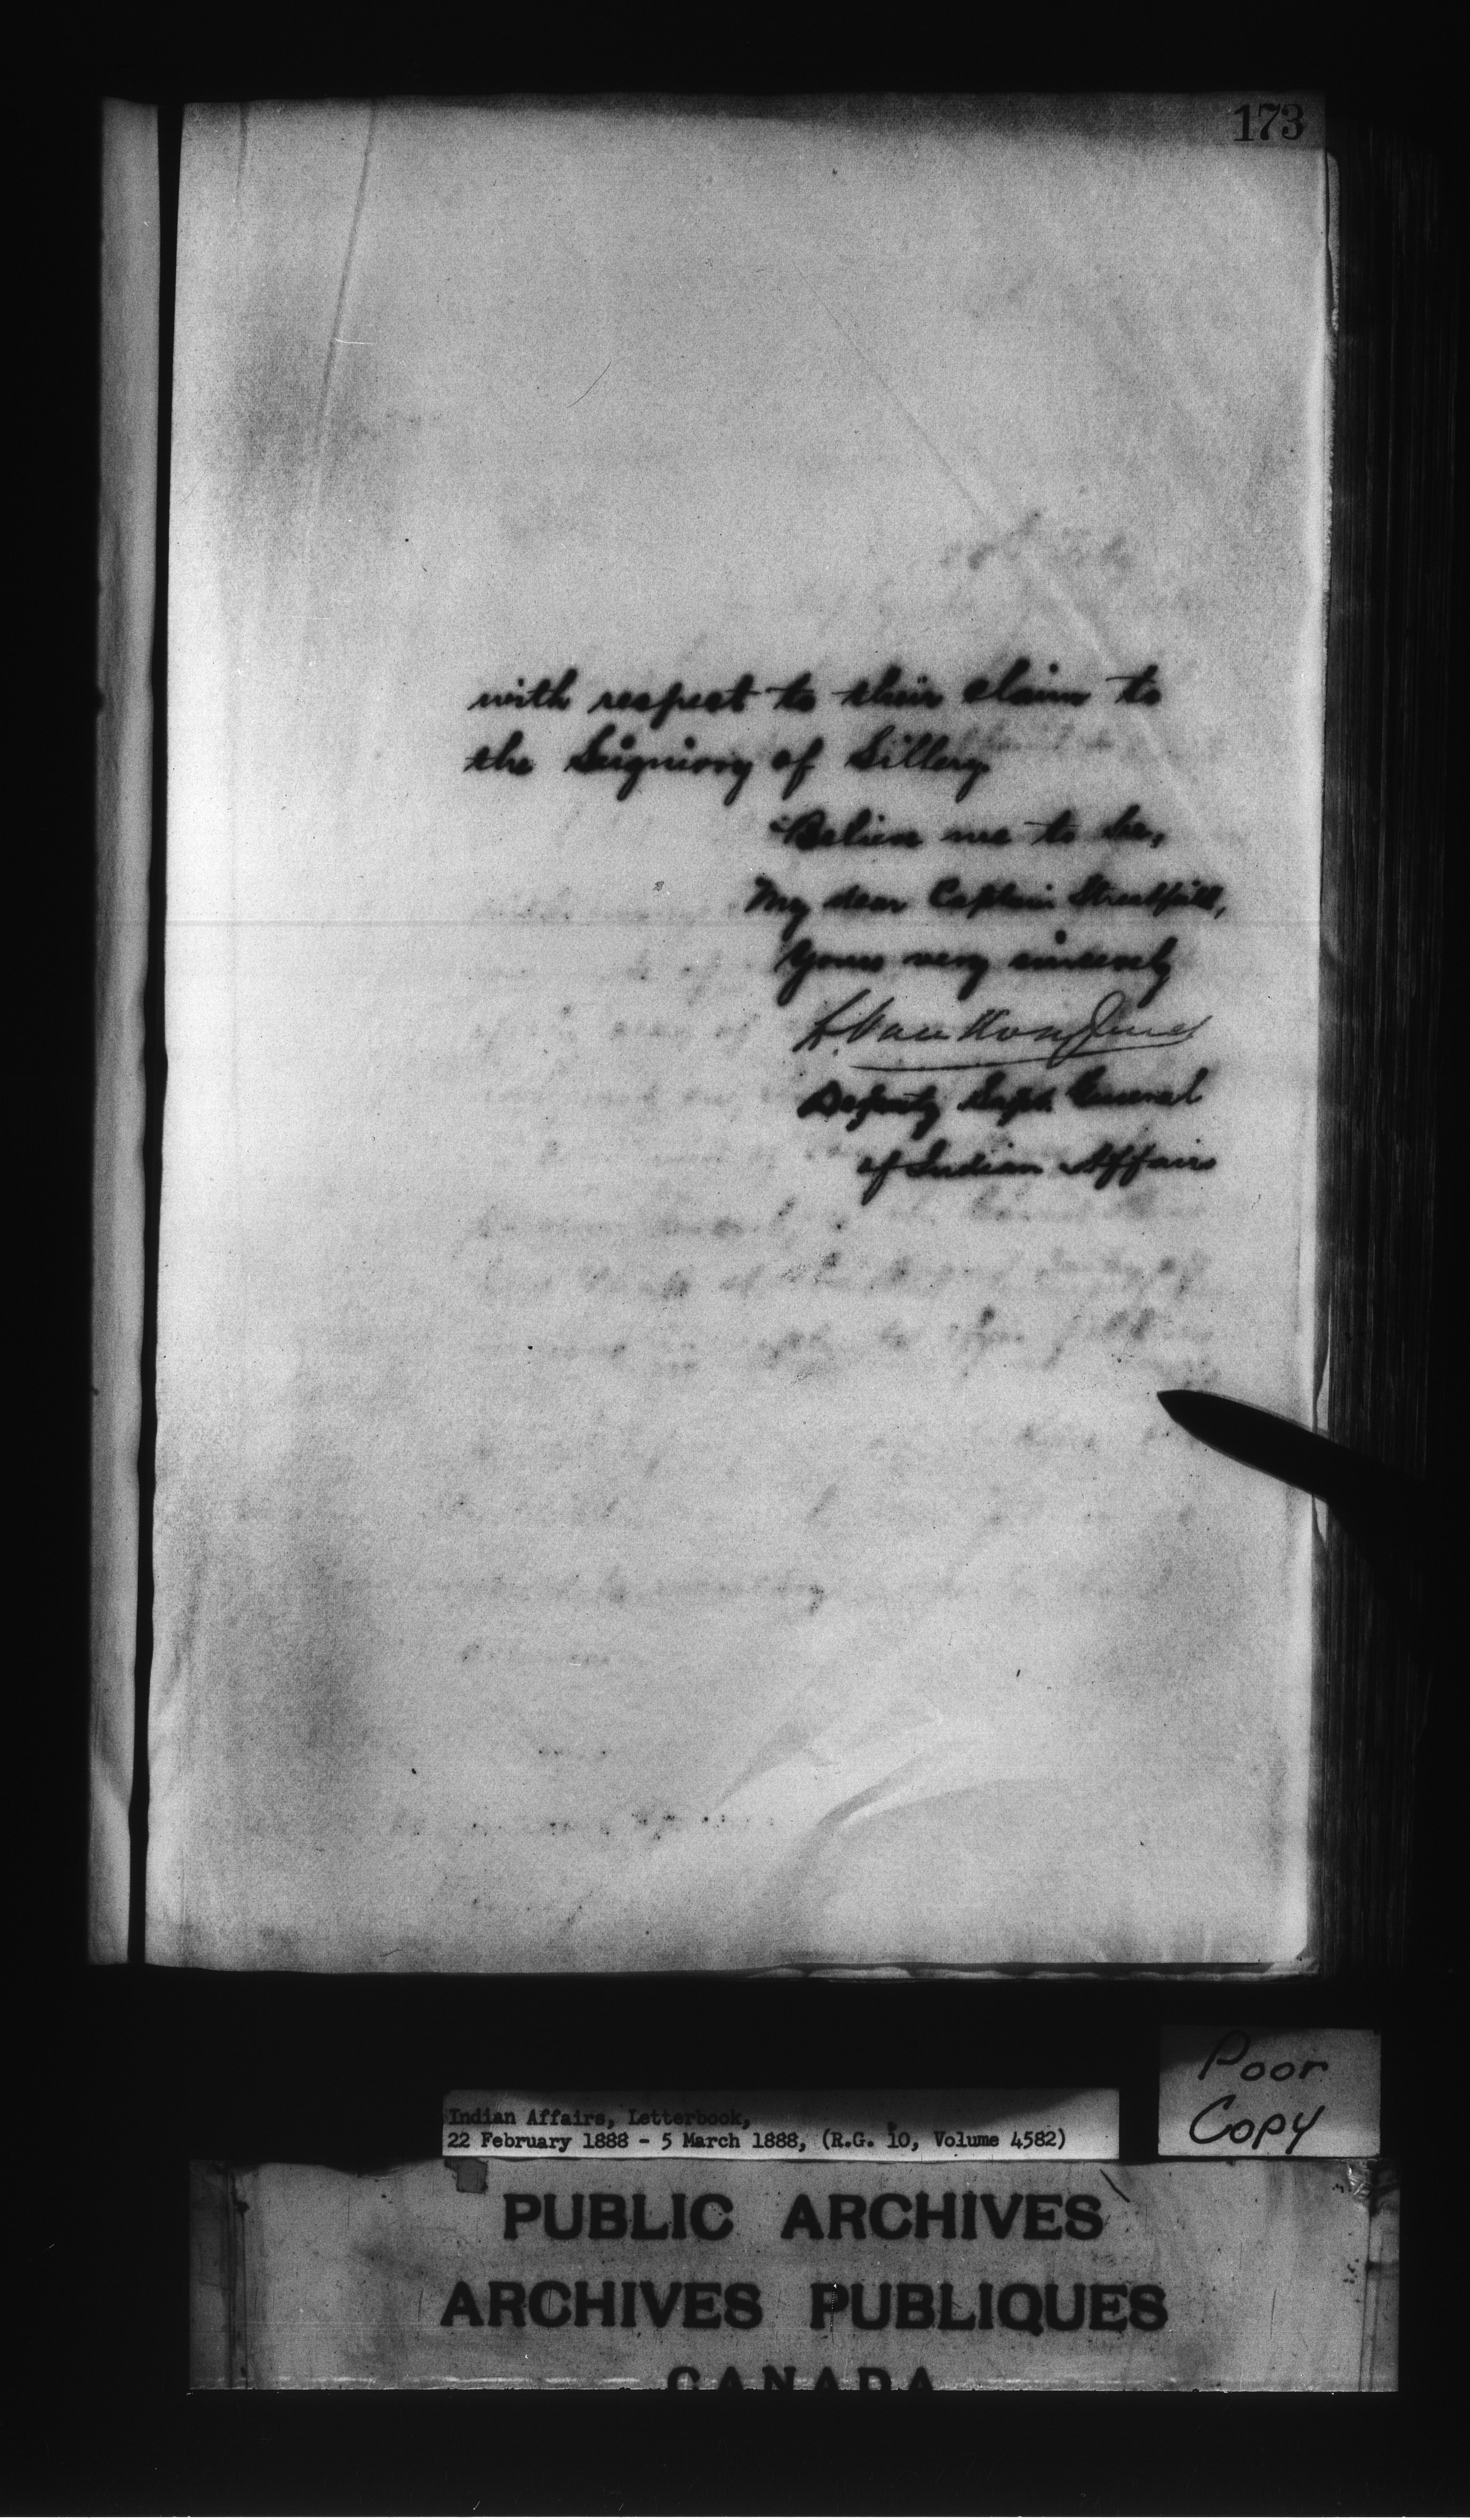 173
with respect to their claim to
the Seigniory of Sillery.
Believe me to be,
My dear Captain Streatfeild,
Yours very sincerely
L. VanKoughnet
Deputy Supt. General
of Indian Affairs
Poor
Copy
Indian Affairs, Letterbook,
22 February 1888 - 5 March 1888, (R.G. 10, Volume 4582)
PUBLIC ARCHIVES
ARCHIVES PUBLIQUES
CANADA